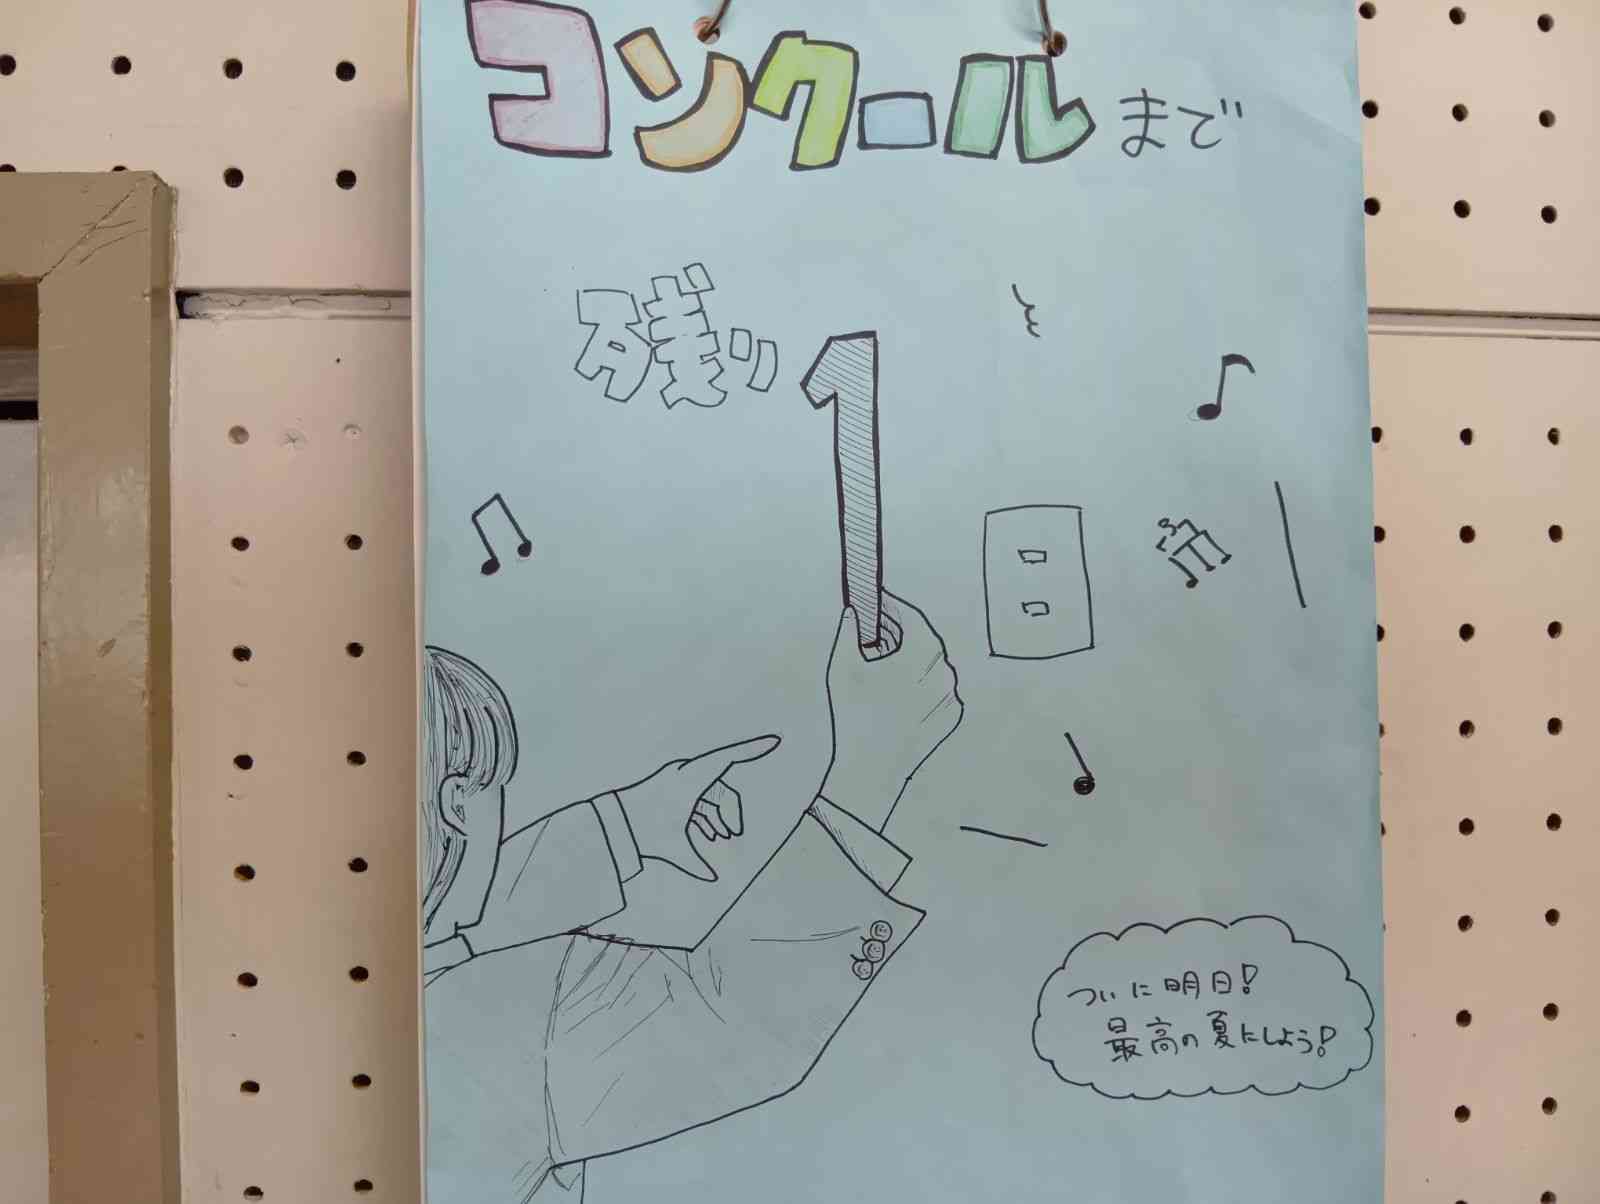 コンクールまで
残り1日
ついに明日!
最高の夏にしよう!